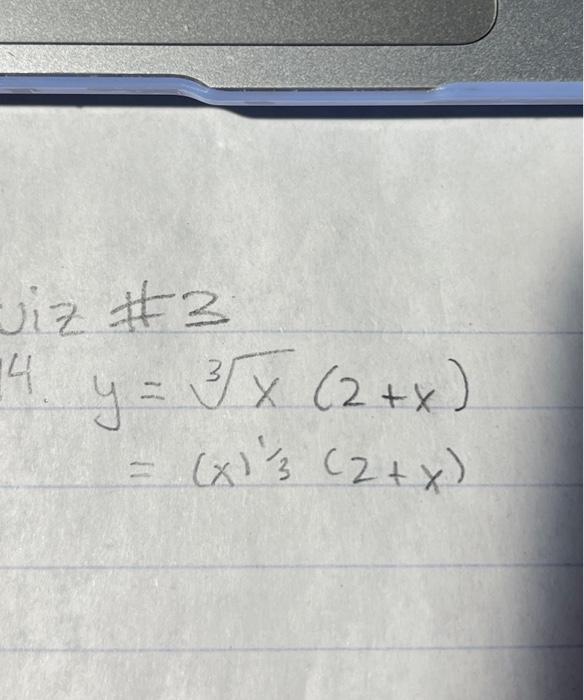 uiz #3
14. y = ∛x (2+x)
= (x)^1/3 (2+x)